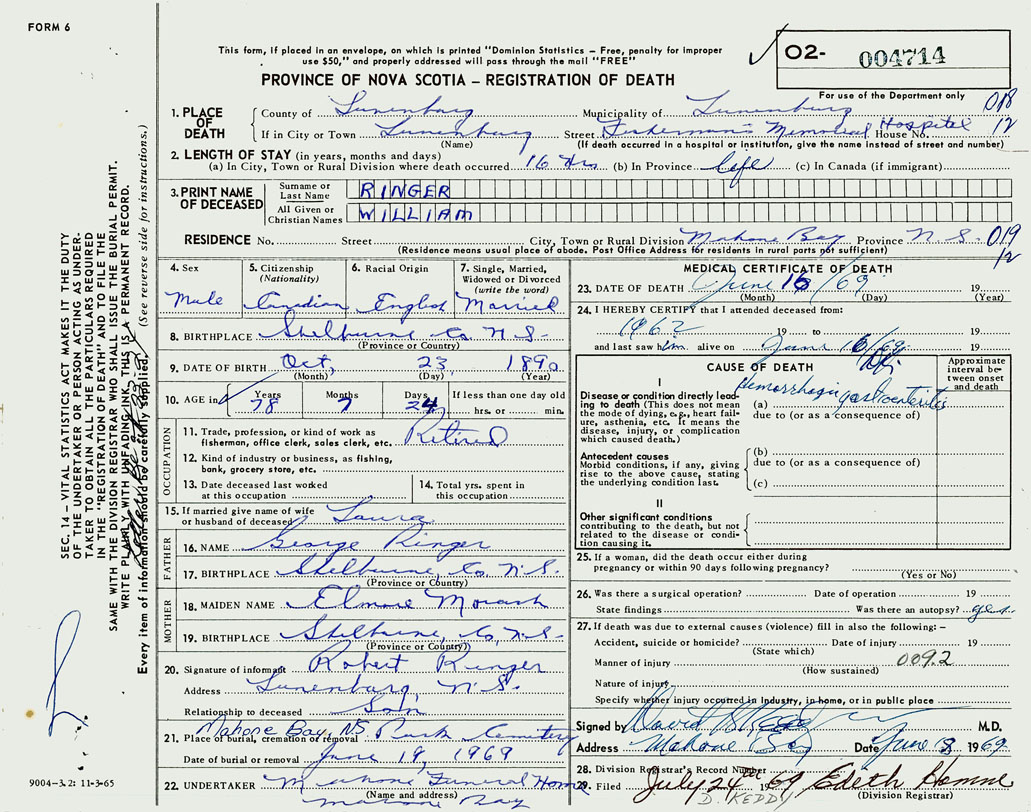 FORM 6
This form, if placed in an envelope, on which is printed "Dominion Statistics – Free, penalty for improper
use $50," and properly addressed will pass through the mail "FREE"
PROVINCE OF NOVA SCOTIA – REGISTRATION OF DEATH
O2- 004714
For use of the Department only
018
12
1. PLACE OF DEATH
County of Lunenburg Municipality of Lunenburg
If in City or Town Lunenburg Street Fisherman's Memorial Hospital House No.
(Name) (If death occurred in a hospital or institution, give the name instead of street and number)
2. LENGTH OF STAY (in years, months and days)
(a) In City, Town or Rural Division where death occurred 16 Hrs (b) In Province Life (c) In Canada (if immigrant)
3. PRINT NAME OF DECEASED
Surname or Last Name RINGER
All Given or Christian Names WILLIAM
RESIDENCE No. Street City, Town or Rural Division Mahone Bay Province N.S. 019
(Residence means usual place of abode. Post Office Address for residents in rural parts not sufficient)
12
4. Sex Male
5. Citizenship (Nationality) Canadian
6. Racial Origin English
7. Single, Married, Widowed or Divorced (write the word) Married
8. BIRTHPLACE Shelburne Co N.S.
(Province or Country)
9. DATE OF BIRTH Oct, 23, 1890
(Month) (Day) (Year)
10. AGE in Years 78 Months 7 Days 24 If less than one day old
hrs. or min.
OCCUPATION
11. Trade, profession, or kind of work as
fisherman, office clerk, sales clerk, etc. Retired
12. Kind of industry or business, as fishing,
bank, grocery store, etc.
13. Date deceased last worked
at this occupation
14. Total yrs. spent in
this occupation
15. If married give name of wife
or husband of deceased Laura
FATHER
16. NAME George Ringer
17. BIRTHPLACE Shelburne, Co N.S.
(Province or Country)
MOTHER
18. MAIDEN NAME Elmore Morash
19. BIRTHPLACE Shelburne, Co, N.S.
(Province or Country)
20. Signature of informant Robert Ringer
Address Lunenburg, N.S.
Relationship to deceased Son
21. Place of burial, cremation or removal Mahone Bay, N.S. Park Cemetery
Date of burial or removal June 19, 1969
22. UNDERTAKER Mahone Funeral Home
(Name and address)
Mahone Bay
MEDICAL CERTIFICATE OF DEATH
23. DATE OF DEATH June 16/69 19
(Month) (Day) (Year)
24. I HEREBY CERTIFY that I attended deceased from:
1962 19 to 19
and last saw him alive on June 16/69 19
CAUSE OF DEATH
Approximate interval between onset and death
I
Disease or condition directly leading to death (This does not mean the mode of dying, e.g., heart failure, asthenia, etc. It means the disease, injury, or complication which caused death.)
(a) Hemorrhagic gastroenteritis
due to (or as a consequence of)
Antecedent causes
Morbid conditions, if any, giving rise to the above cause, stating the underlying condition last.
(b)
due to (or as a consequence of)
(c)
II
Other significant conditions
contributing to the death, but not related to the disease or condition causing it.
25. If a woman, did the death occur either during
pregnancy or within 90 days following pregnancy?
(Yes or No)
26. Was there a surgical operation? Date of operation 19
State findings Was there an autopsy? yes
27. If death was due to external causes (violence) fill in also the following: –
Accident, suicide or homicide? Date of injury 19
(State which)
Manner of injury 009.2
(How sustained)
Nature of injury
Specify whether injury occurred in industry, in home, or in public place
Signed by David M.D.
Address Mahone Bay Date June 1969
28. Division Registrar's Record Number
29. Filed July 24th 1969 Edeth
D. KEDDY (Division Registrar)
SEC. 14 – VITAL STATISTICS ACT MAKES IT THE DUTY
OF THE UNDERTAKER OR PERSON ACTING AS UNDER-
TAKER TO OBTAIN ALL THE PARTICULARS REQUIRED
IN THE "REGISTRATION OF DEATH" AND TO FILE THE
SAME WITH THE DIVISION REGISTRAR WHO SHALL ISSUE THE BURIAL PERMIT.
WRITE PLAINLY WITH UNFADING INK, THIS IS A PERMANENT RECORD.
Every item of information should be carefully supplied. (See reverse side for instructions.)
9004-3.2: 11-3-65